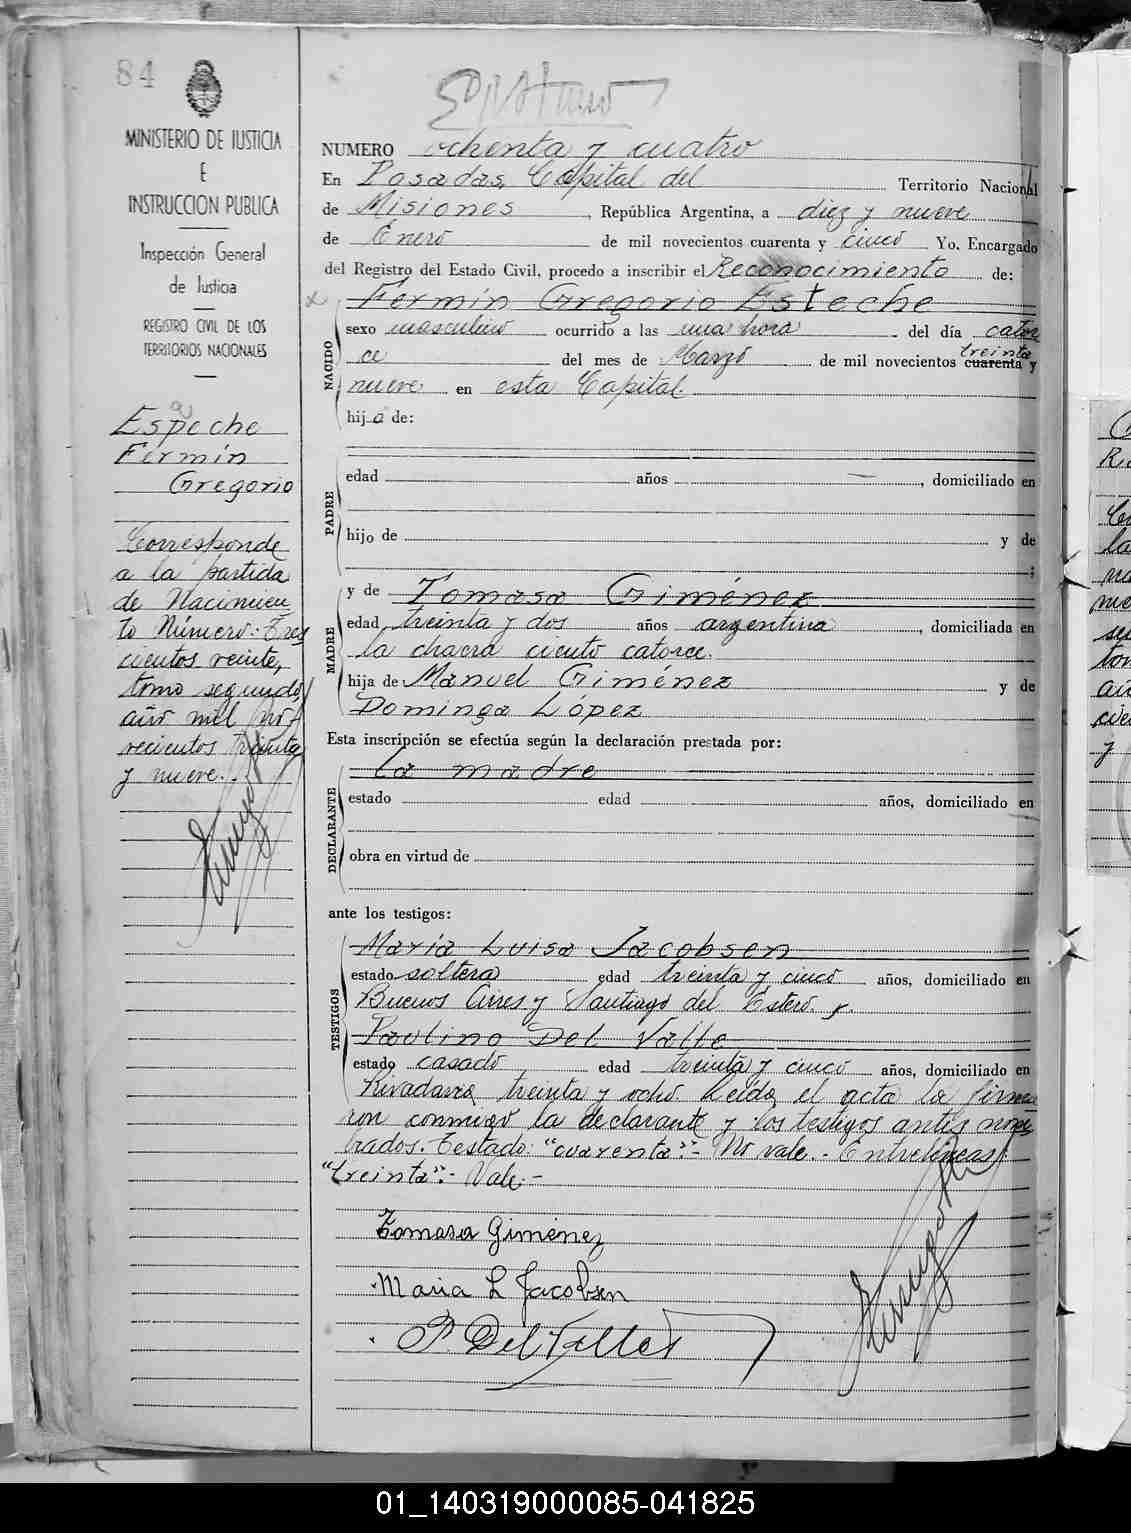 84
MINISTERIO DE JUSTICIA
E
INSTRUCCION PUBLICA
Inspección General
de Justicia
REGISTRO CIVIL DE LOS
TERRITORIOS NACIONALES
Espeche
Fermín
Gregorio
Corresponde
a la partida
de Nacimien
to Número: Tres
cientos veinte,
tomo segundo,
año mil no-
vecientos treinta
y nueve.-
NUMERO ochenta y cuatro
En Posadas, Capital del Territorio Nacional
de Misiones, República Argentina, a diez y nueve
de Enero de mil novecientos cuarenta y cinco Yo, Encargado
del Registro del Estado Civil, procedo a inscribir el Reconocimiento de:
NACIDO
Fermín Gregorio Esteche
sexo masculino ocurrido a las una hora del día cator
ce del mes de Marzo de mil novecientos cuarenta treinta y
nueve en esta Capital.
hijo de:
PADRE
edad años , domiciliado en
hijo de y de
;
MADRE
y de Tomasa Giménez
edad treinta y dos años argentina, domiciliada en
la chacra ciento catorce.
hija de Manuel Giménez y de
Dominga López
Esta inscripción se efectúa según la declaración prestada por:
DECLARANTE
La madre
estado edad años, domiciliado en
obra en virtud de
ante los testigos:
TESTIGOS
María Luisa Jacobsen
estado soltera edad treinta y cinco años, domiciliado en
Buenos Aires y Santiago del Estero y
Paulino Del Valle
estado casado edad treinta y cinco años, domiciliado en
Rivadavia treinta y ocho. Leida el acta la firma
ron conmigo la declarante y los testigos antes nom
brados. Testado: "cuarenta":- No vale.- Entrelíneas:
"treinta":- Vale:-
Tomasa Giménez
Maria L Jacobsen
P. Del Valle
01_140319000085-041825